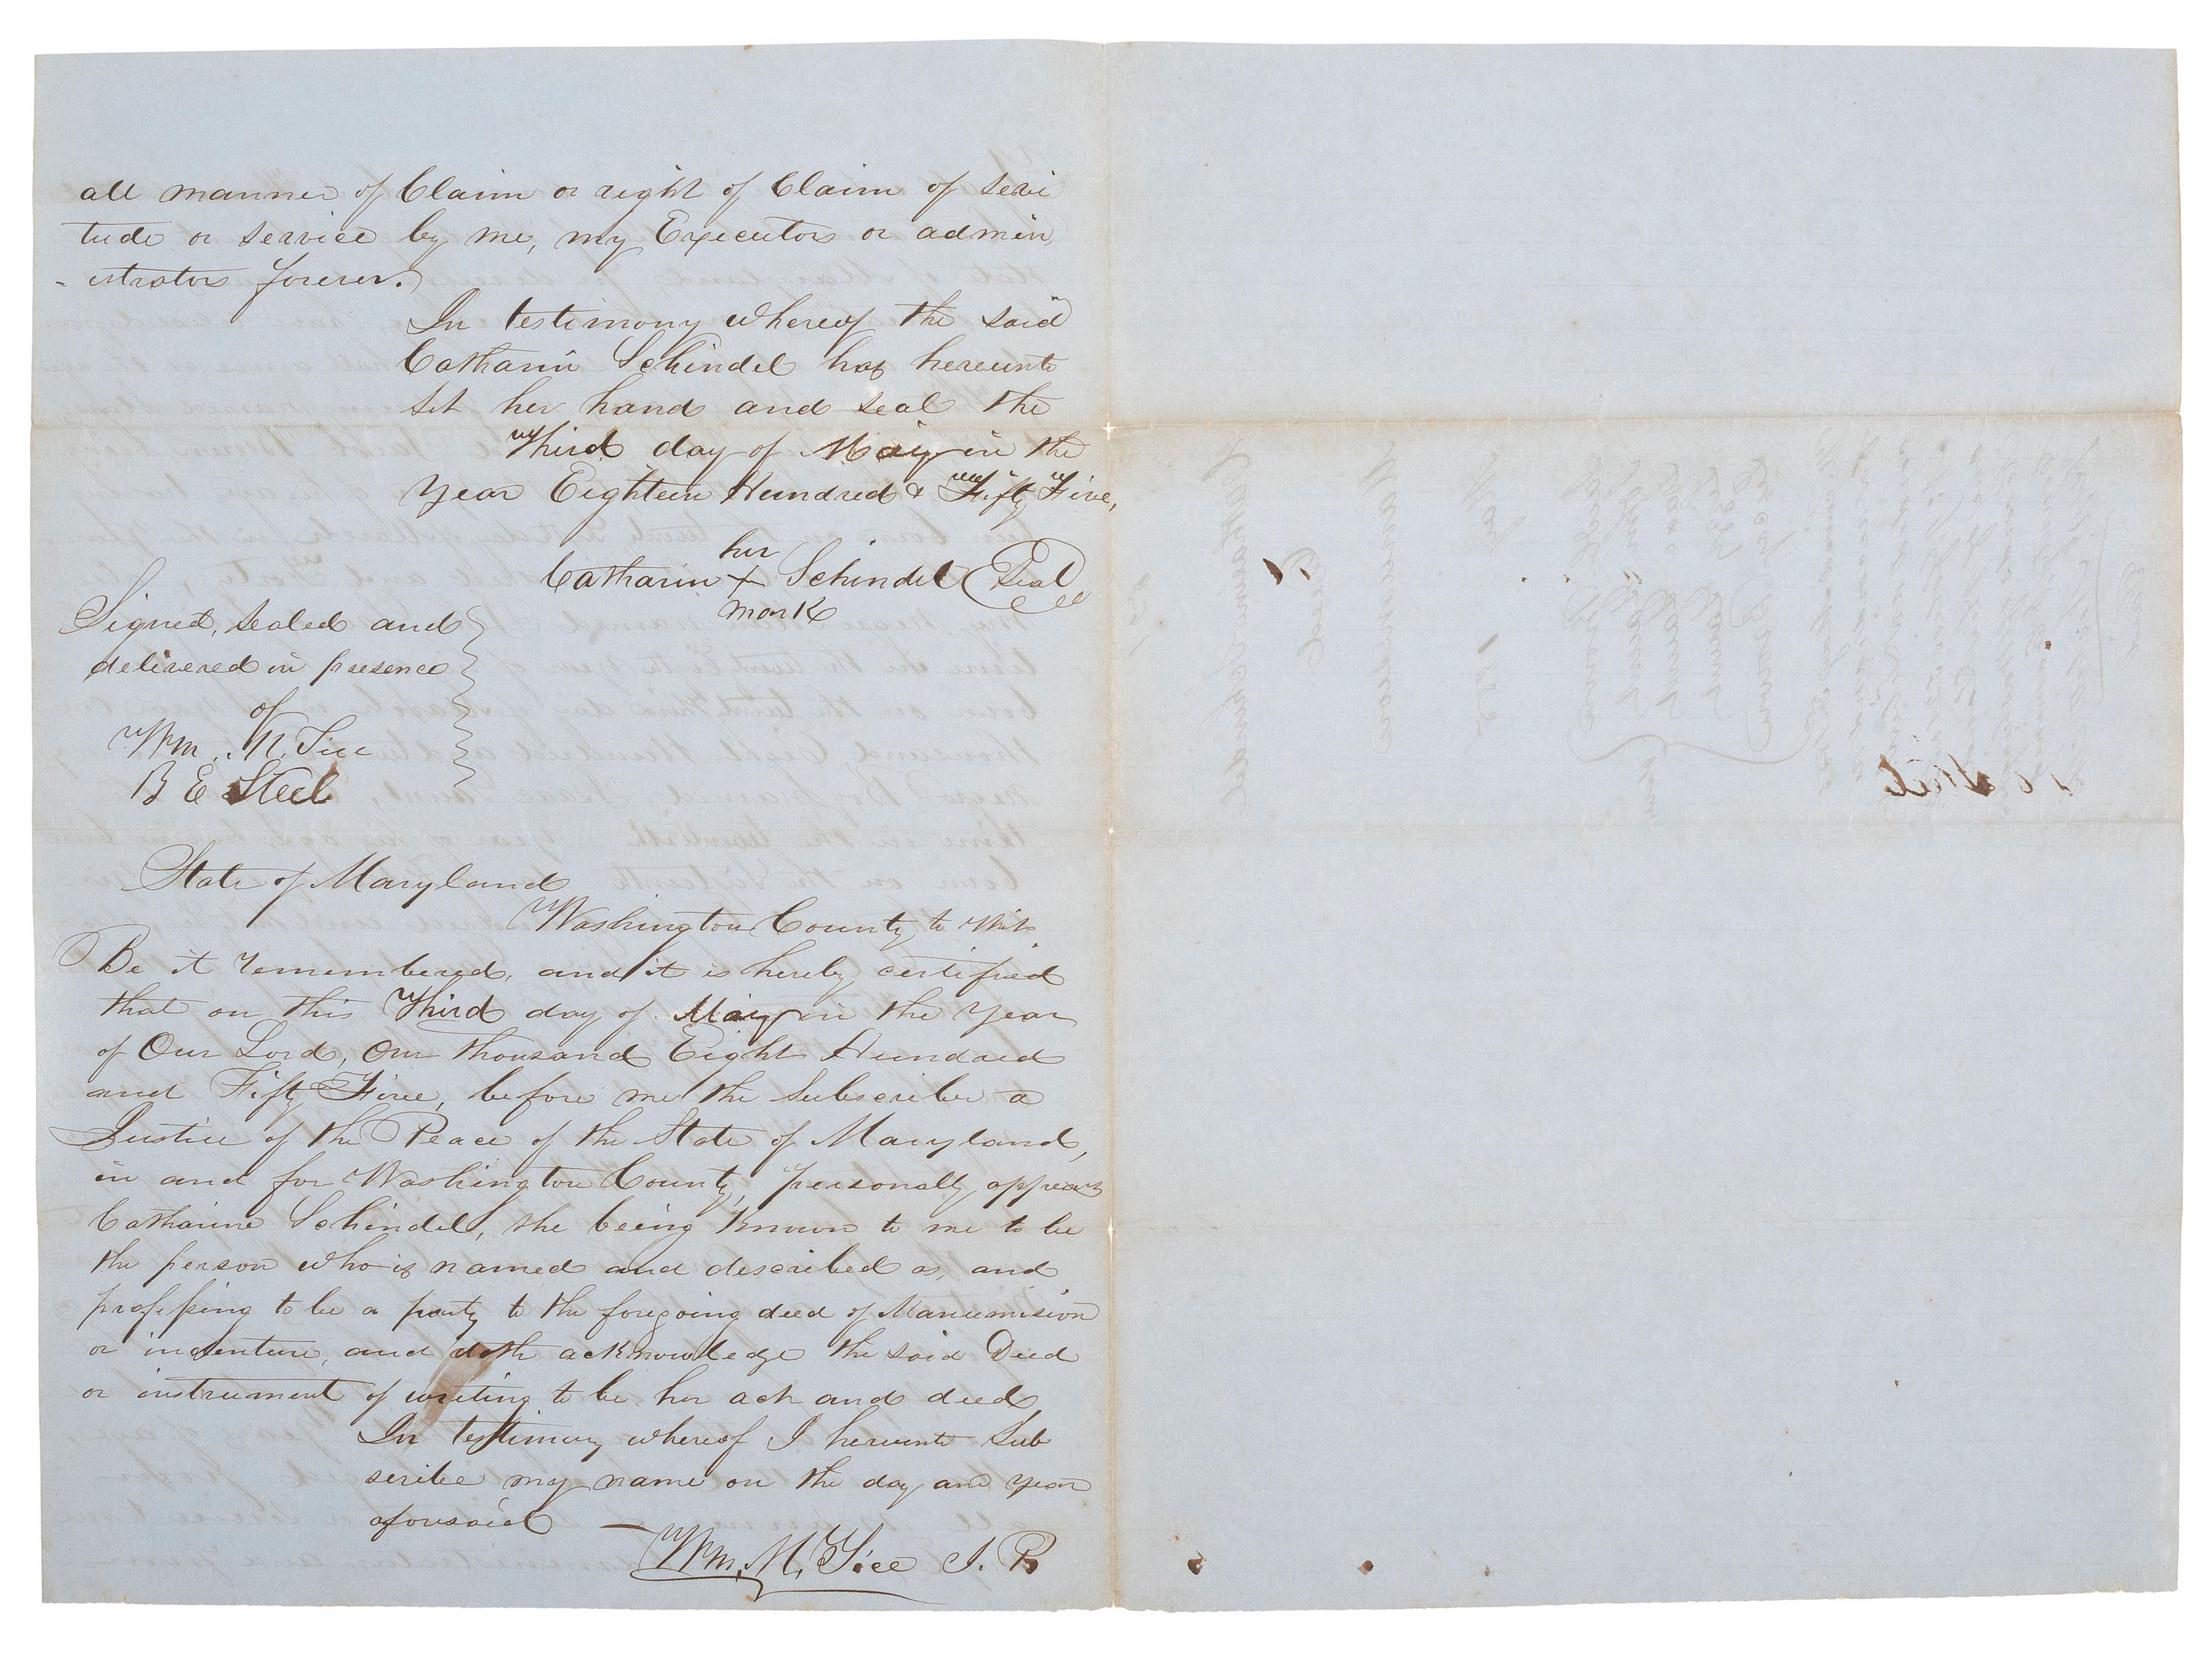 all manner of Claim or right of Claim of servi
tude or service by me, my Executors or admin
- istrators forever.
In testimony whereof the said
Catharin Schindel has hereunto
set her hand and seal the
Third day of May in the
year Eighteen Hundred & Fifty Five,
her
Catharin + Schindel Seal
mark
Signed, sealed and
delivered in presence
of
Wm. M. Tice
B E Steel
State of Maryland
Washington County to Wit
Be it remembered, and it is hereby certified
that on this Third day of May in the year
of Our Lord, One thousand Eight Hundred
and Fifty Five, before me the Subscriber a
Justice of the Peace of the State of Maryland,
in and for Washington County, personally appears
Catharine Schindel, she being Known to me to be
the person who is named and described as, and
professing to be a party to the foregoing deed of Manumision
or indenture, and doth acknowledge the said Deed
or instrument of writing to be her act and deed,
In testimony whereof I hereunto Sub
scribe my name on the day and year
aforesaid —
Wm. M. Tice J. P